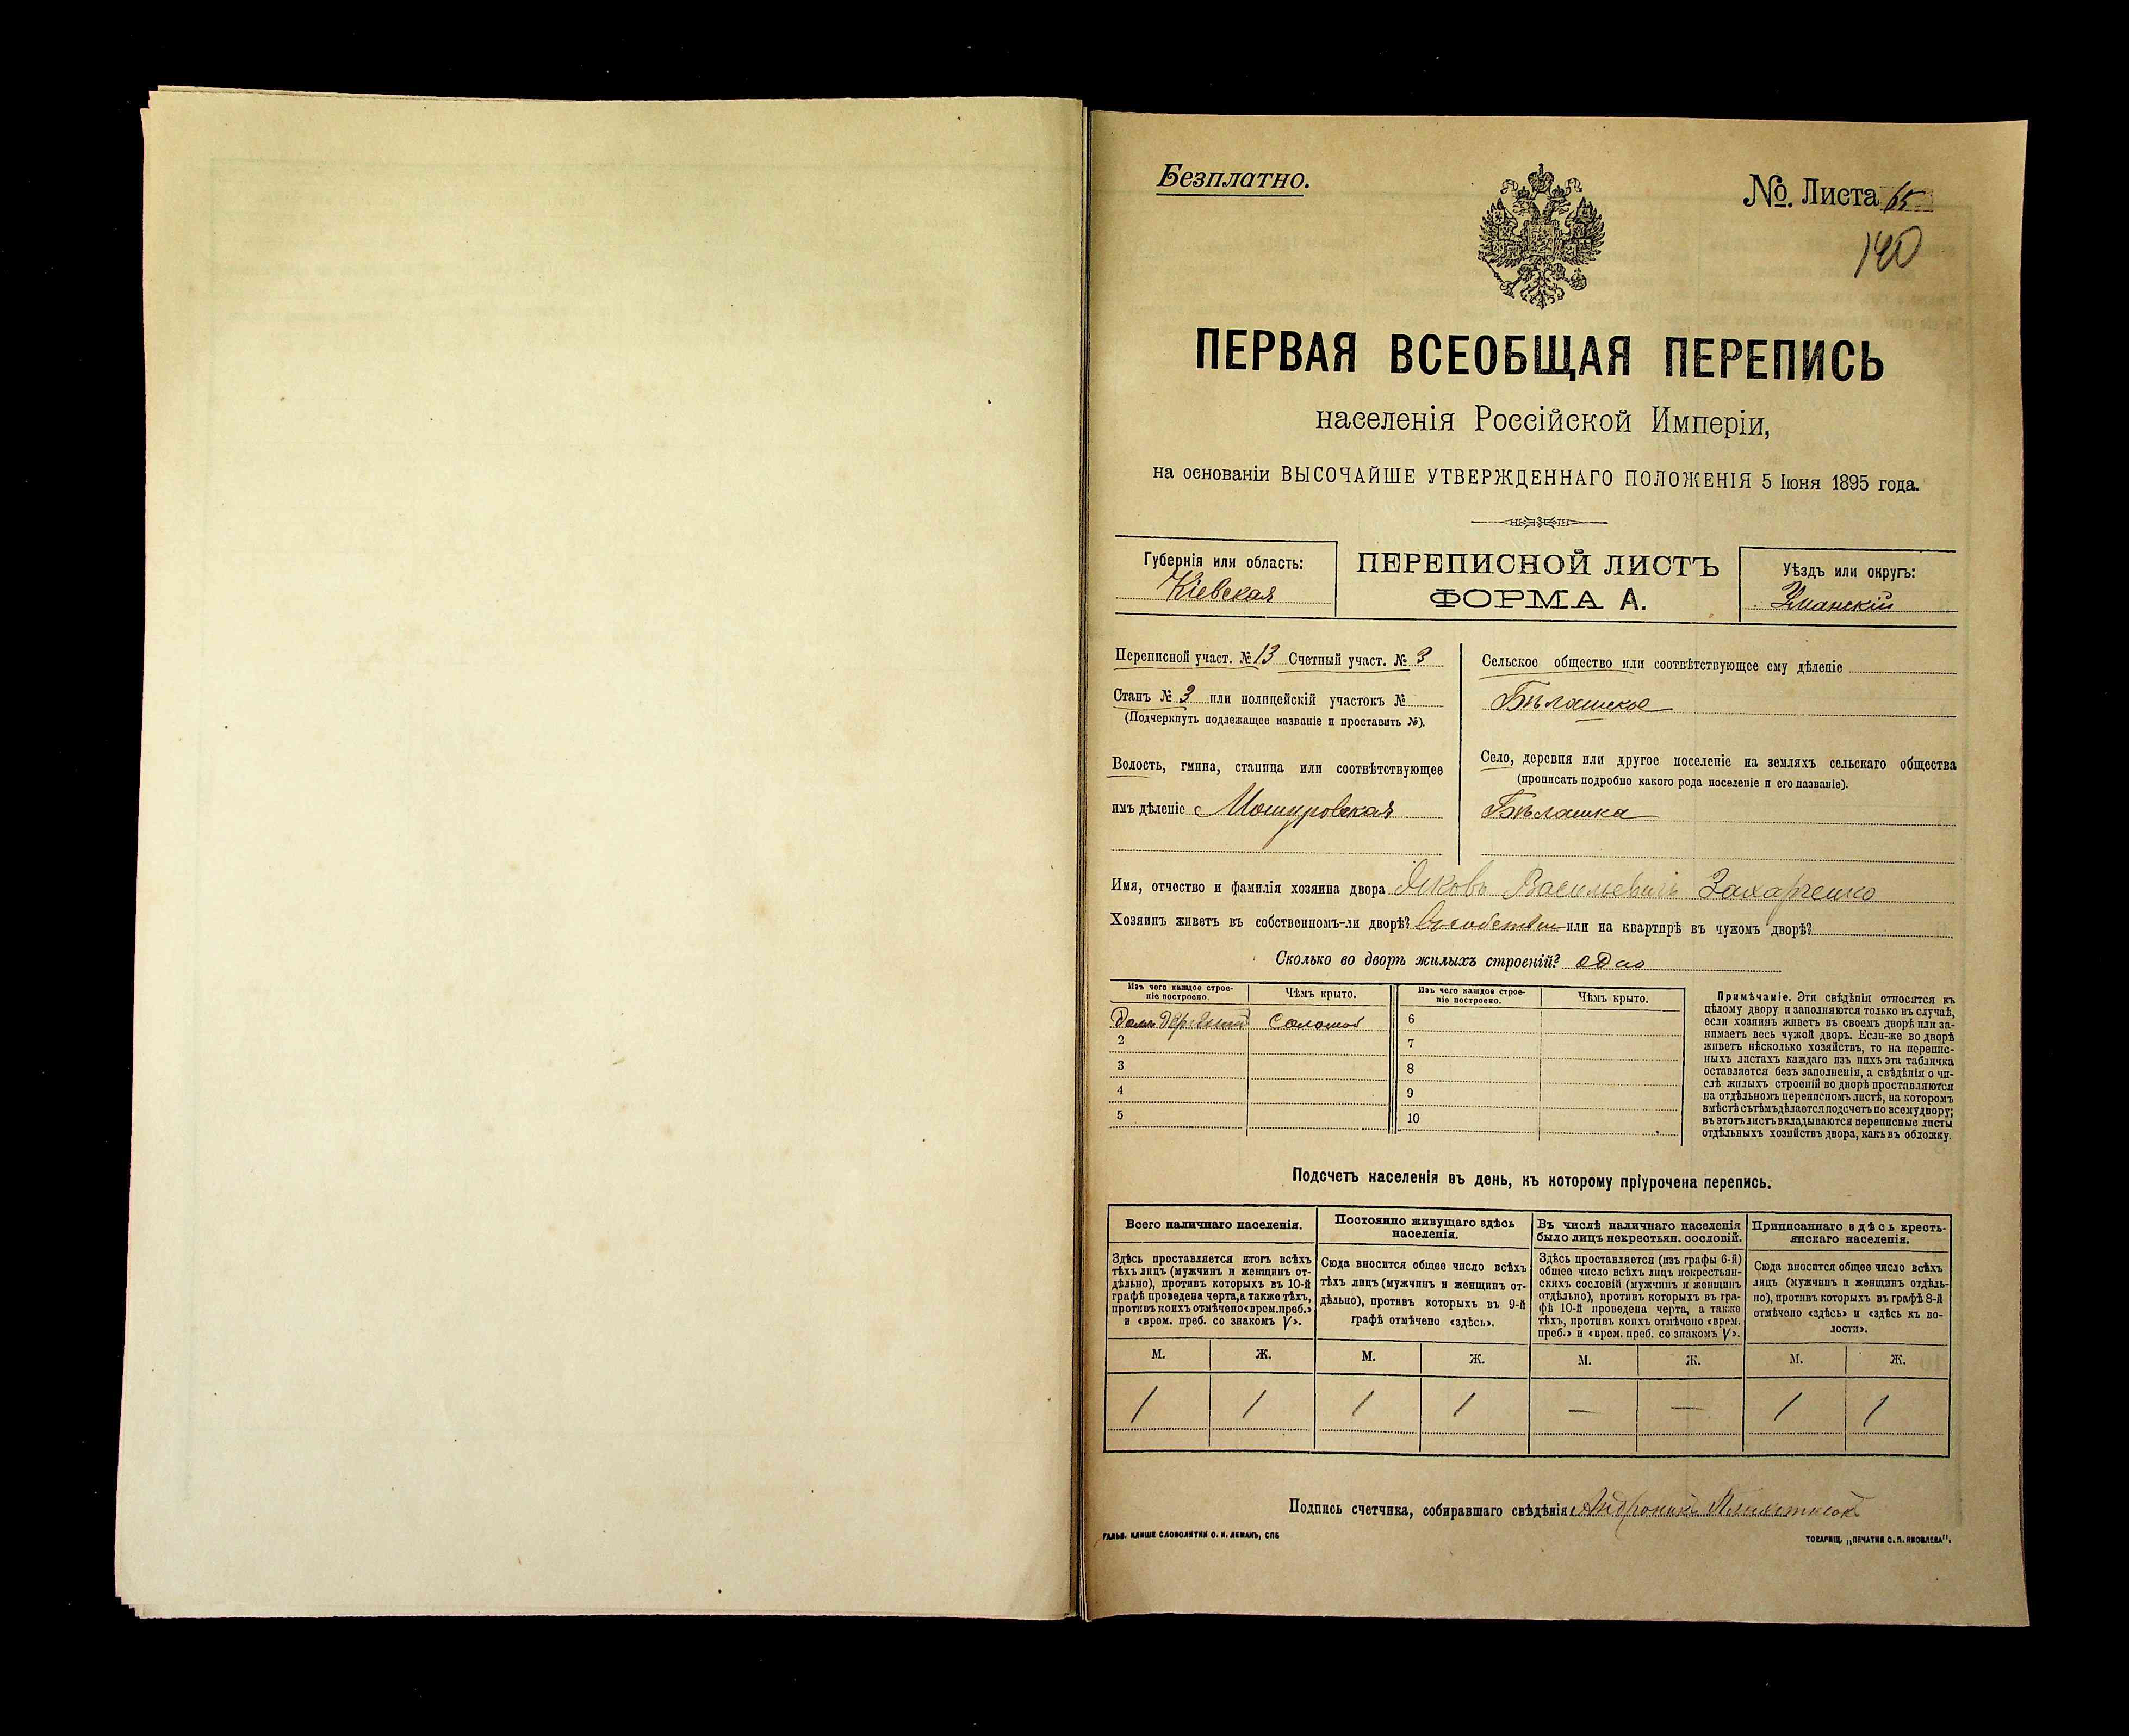 Безплатно.
№. Листа 65
140
ПЕРВАЯ ВСЕОБЩАЯ ПЕРЕПИСЬ
населенія Россійской Имперіи,
на основаніи ВЫСОЧАЙШЕ УТВЕРЖДЕННАГО ПОЛОЖЕНІЯ 5 Іюня 1895 года.
Губернія или область:
Кіевская
ПЕРЕПИСНОЙ ЛИСТЪ
ФОРМА А.
Уѣздъ или округъ:
Уманскій
Переписной участ. № 13 Счетный участ. № 3
Станъ № 3 или полицейскій участокъ №
(Подчеркнуть подлежащее названіе и проставить №).
Волость, гмина, станица или соотвѣтствующее
имъ дѣленіе Мошуровская
Сельское общество или соотвѣтствующее ему дѣленіе
Бѣлашское
Село, деревня или другое поселеніе на земляхъ сельскаго общества
(прописать подробно какого рода поселеніе и его названіе).
Бѣлашка
Имя, отчество и фамилія хозяина двора Яковъ Васильевичъ Захарченко
Хозяинъ живетъ въ собственномъ-ли дворѣ? или на квартирѣ въ чужомъ дворѣ?
Сколько во дворѣ жилыхъ строеній? одно
Изъ чего каждое строе-
ніе построено.
Чѣмъ крыто.
Изъ чего каждое строе-
ніе построено.
Чѣмъ крыто.
Домъ Соломой
2
3
4
5
6
7
8
9
10
Примѣчаніе. Эти свѣдѣнія относятся къ
цѣлому двору и заполняются только въ случаѣ,
если хозяинъ живетъ въ своемъ дворѣ или за-
нимаетъ весь чужой дворъ. Если-же во дворѣ
живетъ нѣсколько хозяйствъ, то на перепис-
ныхъ листахъ каждаго изъ нихъ эта табличка
оставляется безъ заполненія, а свѣдѣнія о чи-
слѣ жилыхъ строеній во дворѣ проставляются
на отдѣльномъ переписномъ листѣ, на которомъ
вмѣстѣ съ тѣмъ дѣлается подсчетъ по всему двору;
въ этотъ листъ вкладываются переписные листы
отдѣльныхъ хозяйствъ двора, какъ въ обложку.
Подсчетъ населенія въ день, къ которому пріурочена перепись.
Всего наличнаго населенія.
Здѣсь проставляется итогъ всѣхъ
тѣхъ лицъ (мужчинъ и женщинъ от-
дѣльно), противъ которыхъ въ 10-й
графѣ проведена черта, а также тѣхъ,
противъ коихъ отмѣчено «врем. преб.»
и «врем. преб. со знакомъ V».
Постоянно живущаго здѣсь
населенія.
Сюда вносится общее число всѣхъ
тѣхъ лицъ (мужчинъ и женщинъ от-
дѣльно), противъ которыхъ въ 9-й
графѣ отмѣчено «здѣсь».
Въ числѣ наличнаго населенія
было лицъ некрестьян. сословій.
Здѣсь проставляется (изъ графы 6-й)
общее число всѣхъ лицъ некрестьян-
скихъ сословій (мужчинъ и женщинъ
отдѣльно), противъ которыхъ въ гра-
фѣ 10-й проведена черта, а также
тѣхъ, противъ коихъ отмѣчено «врем.
преб.» и «врем. преб. со знакомъ V».
Приписаннаго здѣсь кресть-
янскаго населенія.
Сюда вносится общее число всѣхъ
лицъ (мужчинъ и женщинъ отдѣль-
но), противъ которыхъ въ графѣ 8-й
отмѣчено «здѣсь» и «здѣсь къ во-
лости».
М. Ж. М. Ж. М. Ж. М. Ж.
1 1 1 1 — — 1 1
Подпись счетчика, собиравшаго свѣдѣнія:
ГАЛЬВ. КЛИШЕ СЛОВОЛИТНИ О. И. ЛЕМАНЪ, СПБ
ТОВАРИЩ. „ПЕЧАТНЯ С. П. ЯКОВЛЕВА".